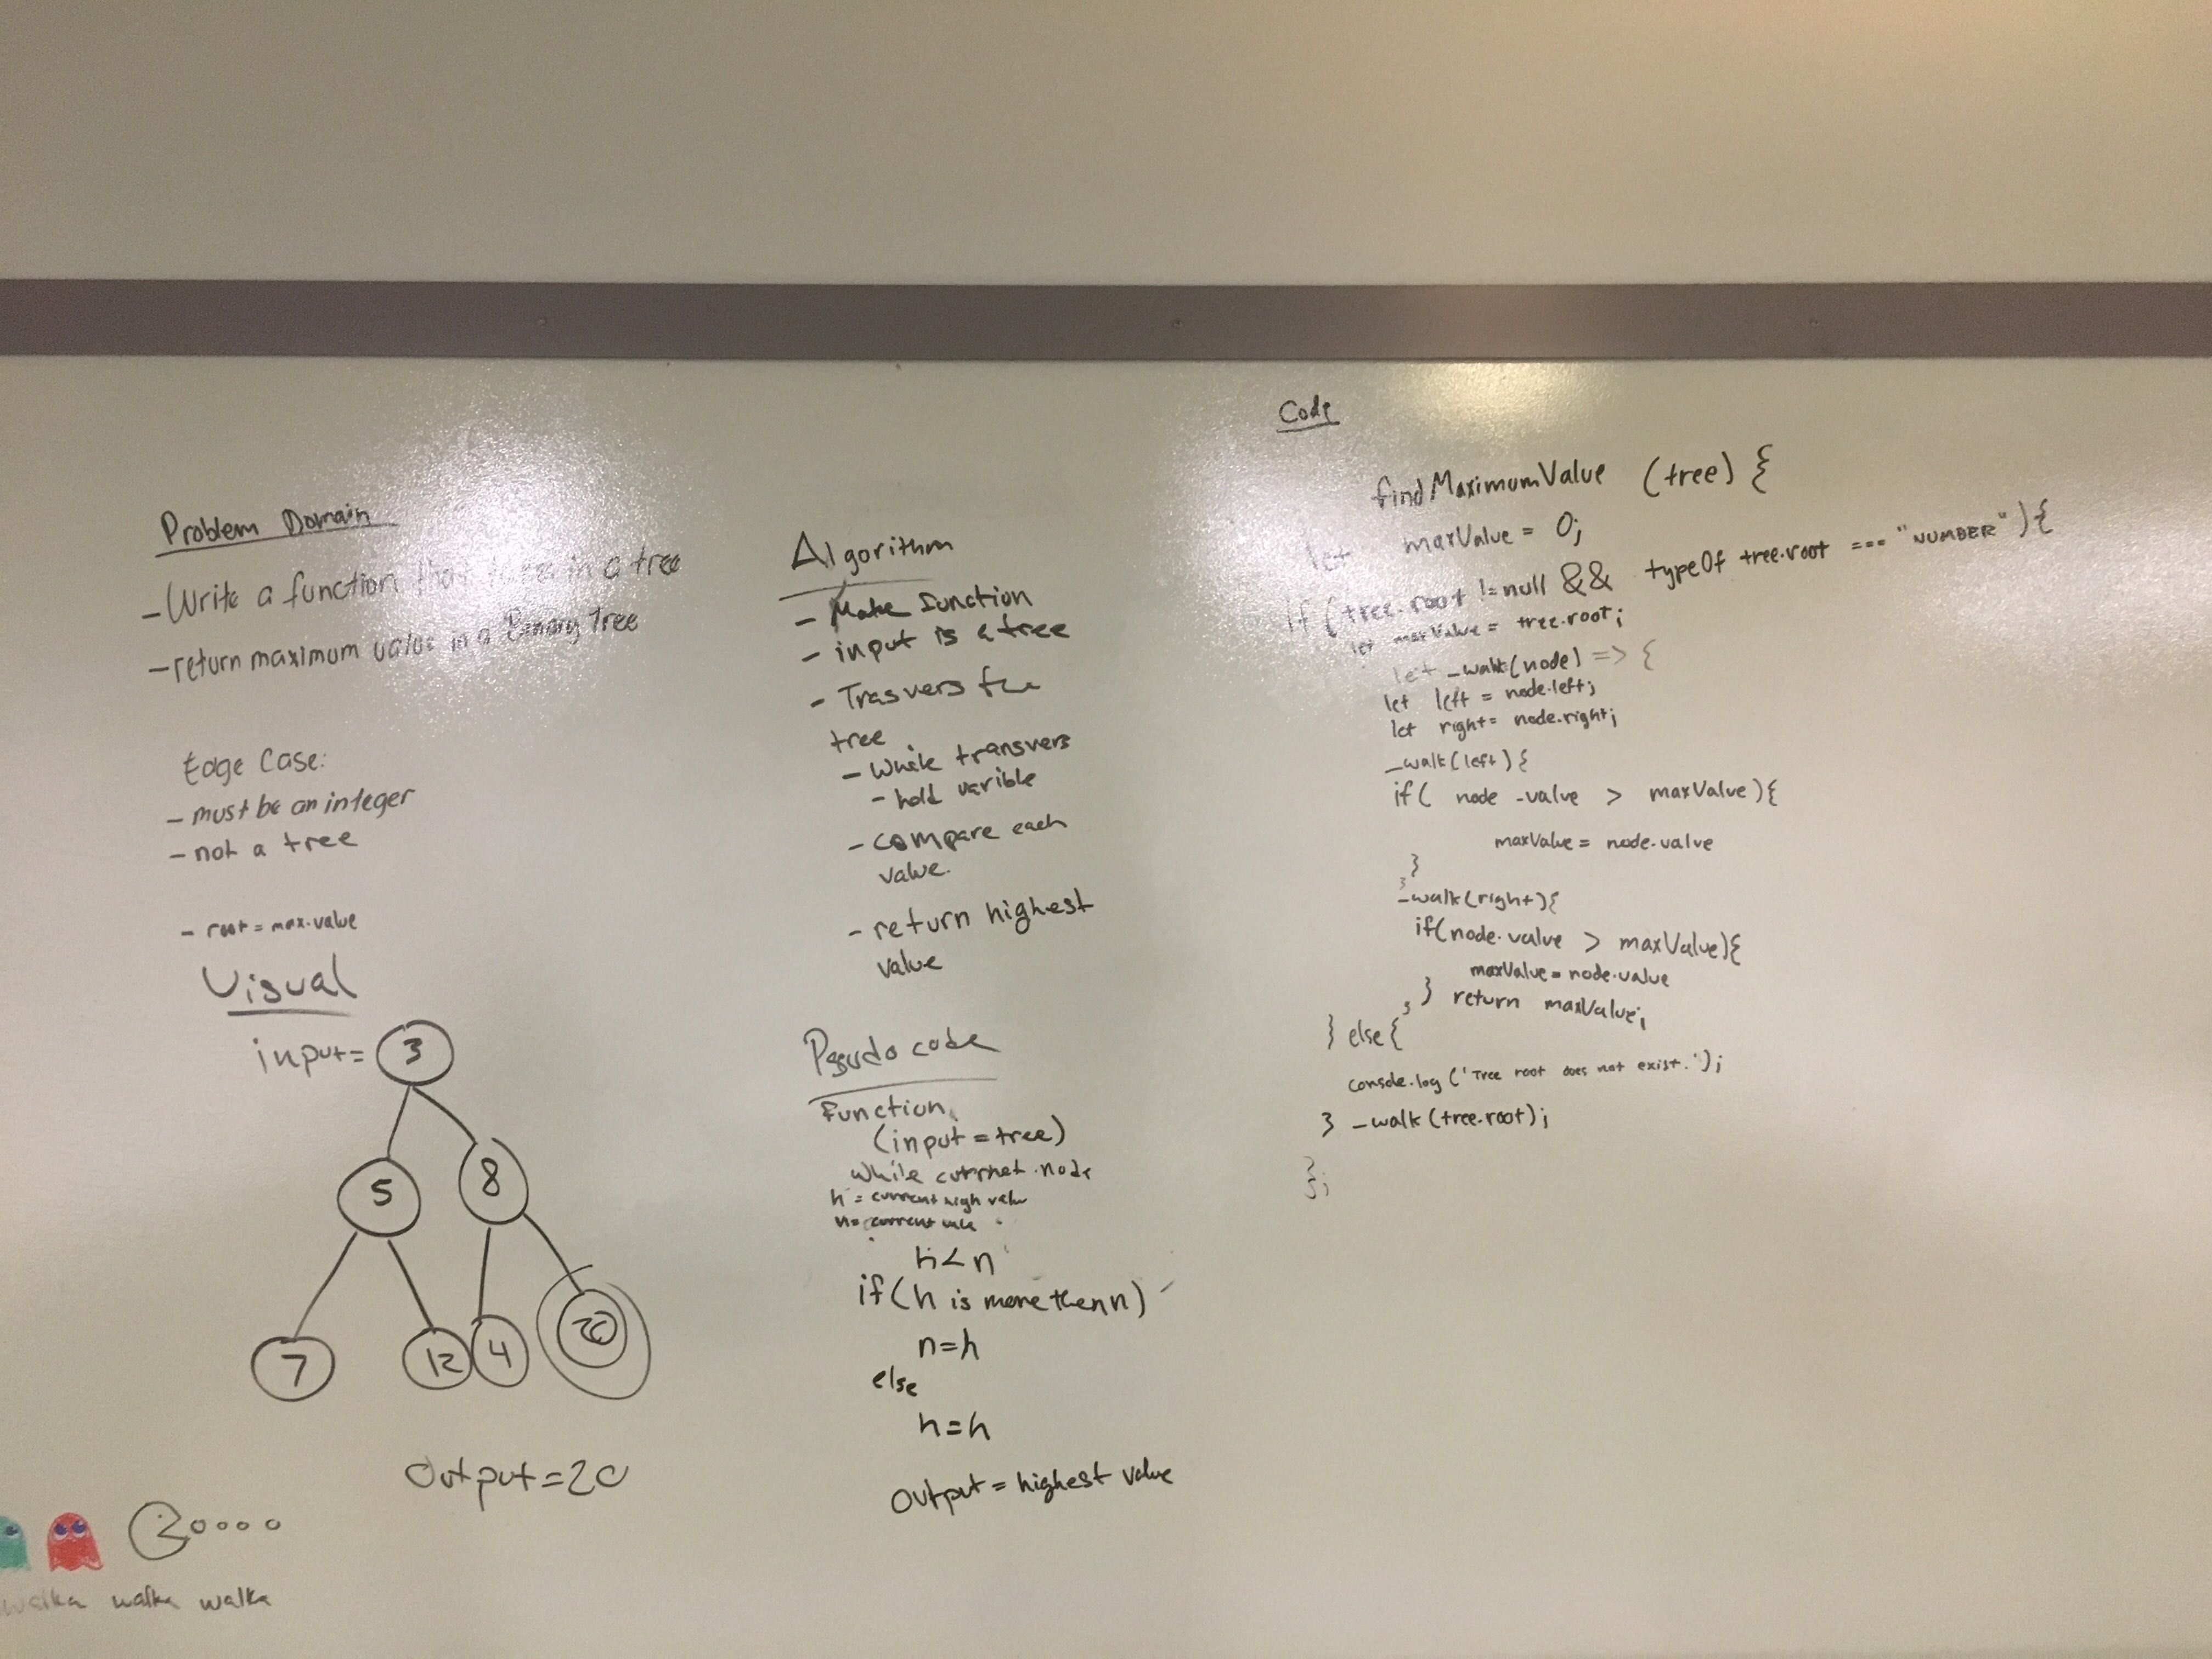 Problem Domain
- Write a function that takes in a tree
- return maximum value in a Binary Tree
Edge Case:
- must be an integer
- not a tree
- root = max.value
Visual
input = 3
5 8
7 12 4 20
Output = 20
walka walka walka
Algorithm
- Make function
- input is a tree
- Trasvers
tree
- While transvers
- hold varible
- compare each
value.
- return highest
value
Pseudo code
Function
(input = tree)
while .node
h = current high value
n = current
h < n
if (h is more then n)
n = h
else
h = h
Output = highest value
Code
findMaximumValue (tree) {
let maxValue = 0;
if (tree.root != null && typeOf tree.root === "NUMBER") {
let maxValue = tree.root;
let _walk(node) => {
let left = node.left;
let right = node.right;
_walk(left) {
if( node .value > maxValue) {
maxValue = node.value
}
}
_walk(right) {
if(node.value > maxValue) {
maxValue = node.value
} return maxValue;
}
} else {
console.log ('Tree root does not exist.');
} _walk (tree.root);
}
};